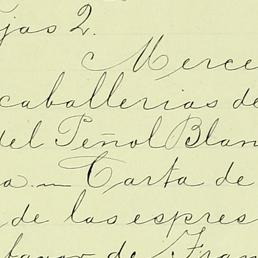 jas 2.
Merce
caballerias de
del Peñol Blan
a.— Carta de
de las espres
favor de Fran